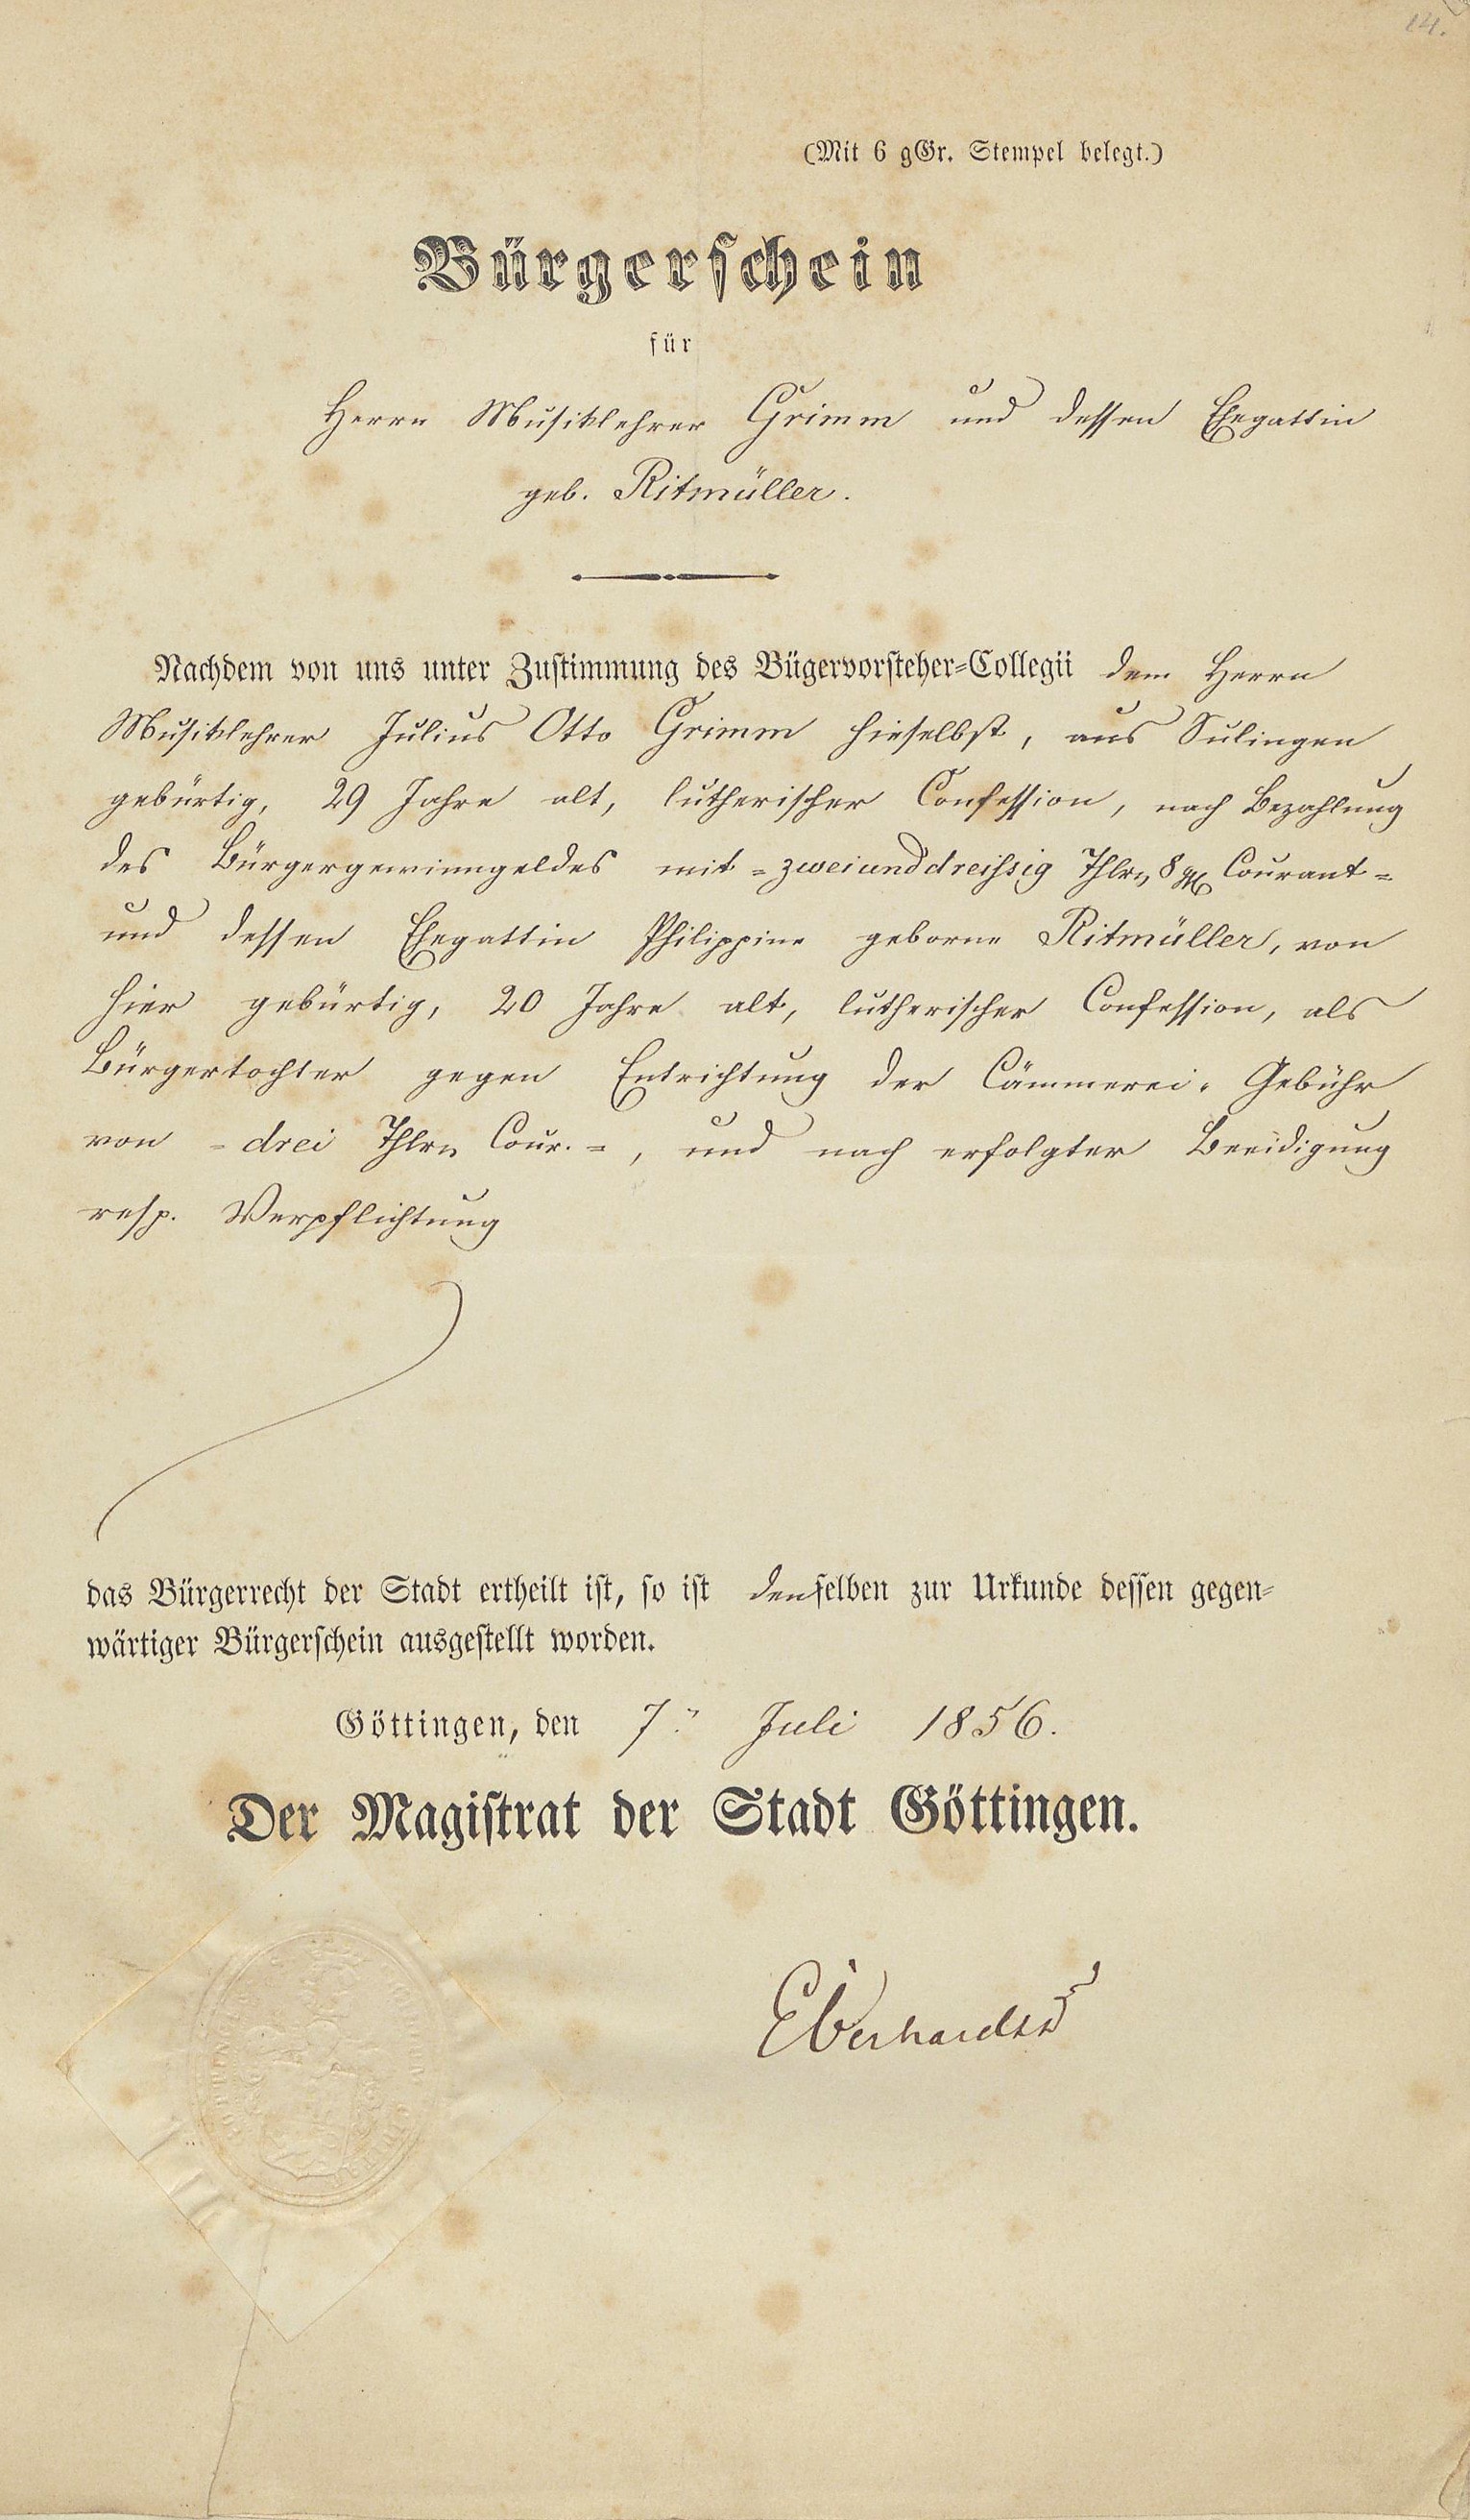 14.
(Mit 6 gGr. Stempel belegt.)
Bürgerschein
für
Herrn Musiklehrer Grimm und dessen Ehegattin
geb. Ritmüller.
Nachdem von uns unter Zustimmung des Bügervorsteher-Collegii dem Herrn
Musiklehrer Julius Otto Grimm hieselbst, aus Sulingen
gebürtig, 29 Jahre alt, lutherischer Confession, nach Bezahlung
des Bürgergewinngeldes mit = zweiunddreissig Thlrn 8 gGr Courant =
und dessen Ehegattin Philippine geborne Ritmüller, von
hier gebürtig, 20 Jahre alt, lutherischer Confession, als
Bürgertochter gegen Entrichtung der Cämmerei-Gebühr
von = drei Thlrn Cour. =, und nach erfolgter Beeidigung
resp. Verpflichtung
das Bürgerrecht der Stadt ertheilt ist, so ist denselben zur Urkunde dessen gegen-
wärtiger Bürgerschein ausgestellt worden.
Göttingen, den 7. Juli 1856.
Der Magistrat der Stadt Göttingen.
Eberhardt